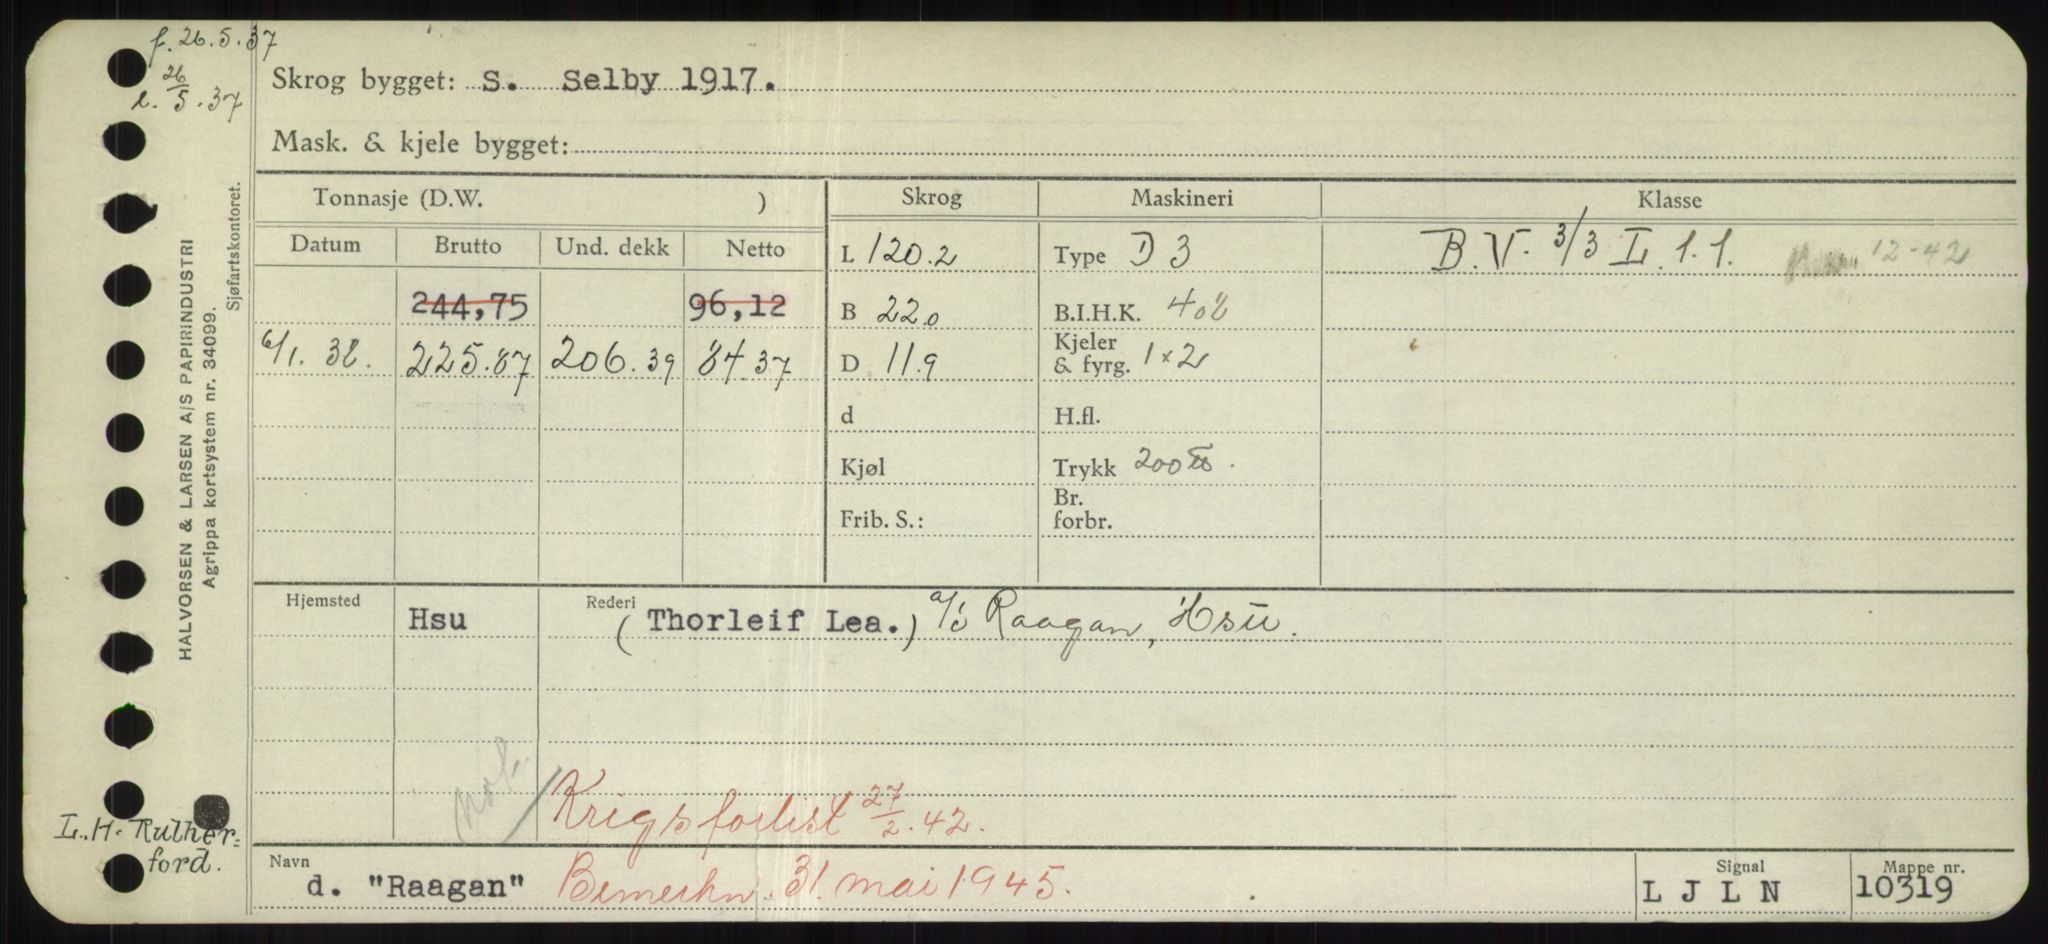 f. 26.5.37
l. 26/5.37
Skrog bygget: S. Selby 1917.
Mask. & kjele bygget:
Tonnasje (D.W. )
Skrog
Maskineri
Klasse
Datum Brutto Und. dekk Netto
L 120.2
Type D 3
B.V. 3/3 L.1.1. 12-42
244,75 96,12
B 22.0
B.I.H.K. 408
6/1.38. 225.87 206.39 84.37
D 11.9
Kjeler
& fyrg. 1x2
d
H.fl.
Kjøl
Trykk 200 lb.
Frib. S.:
Br.
forbr.
Hjemsted Hsu
Rederi (Thorleif Lea.) a/s Raagan, Hsu.
Krigsforlist 27/2.42.
Navn d. "Raagan" Bemerkn. 31. mai 1945.
Signal L J L N
Mappe nr. 10319
HALVORSEN & LARSEN A/S PAPIRINDUSTRI
Agrippa kortsystem nr. 34099.
Sjøfartskontoret.
L. H. Ruther=
ford.